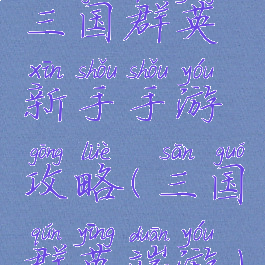 三国群英
xīn shǒu shǒu yóu
新手手游
gōng lüè sān guó
攻略(三国
qún yīng duān yóu
群英端游)